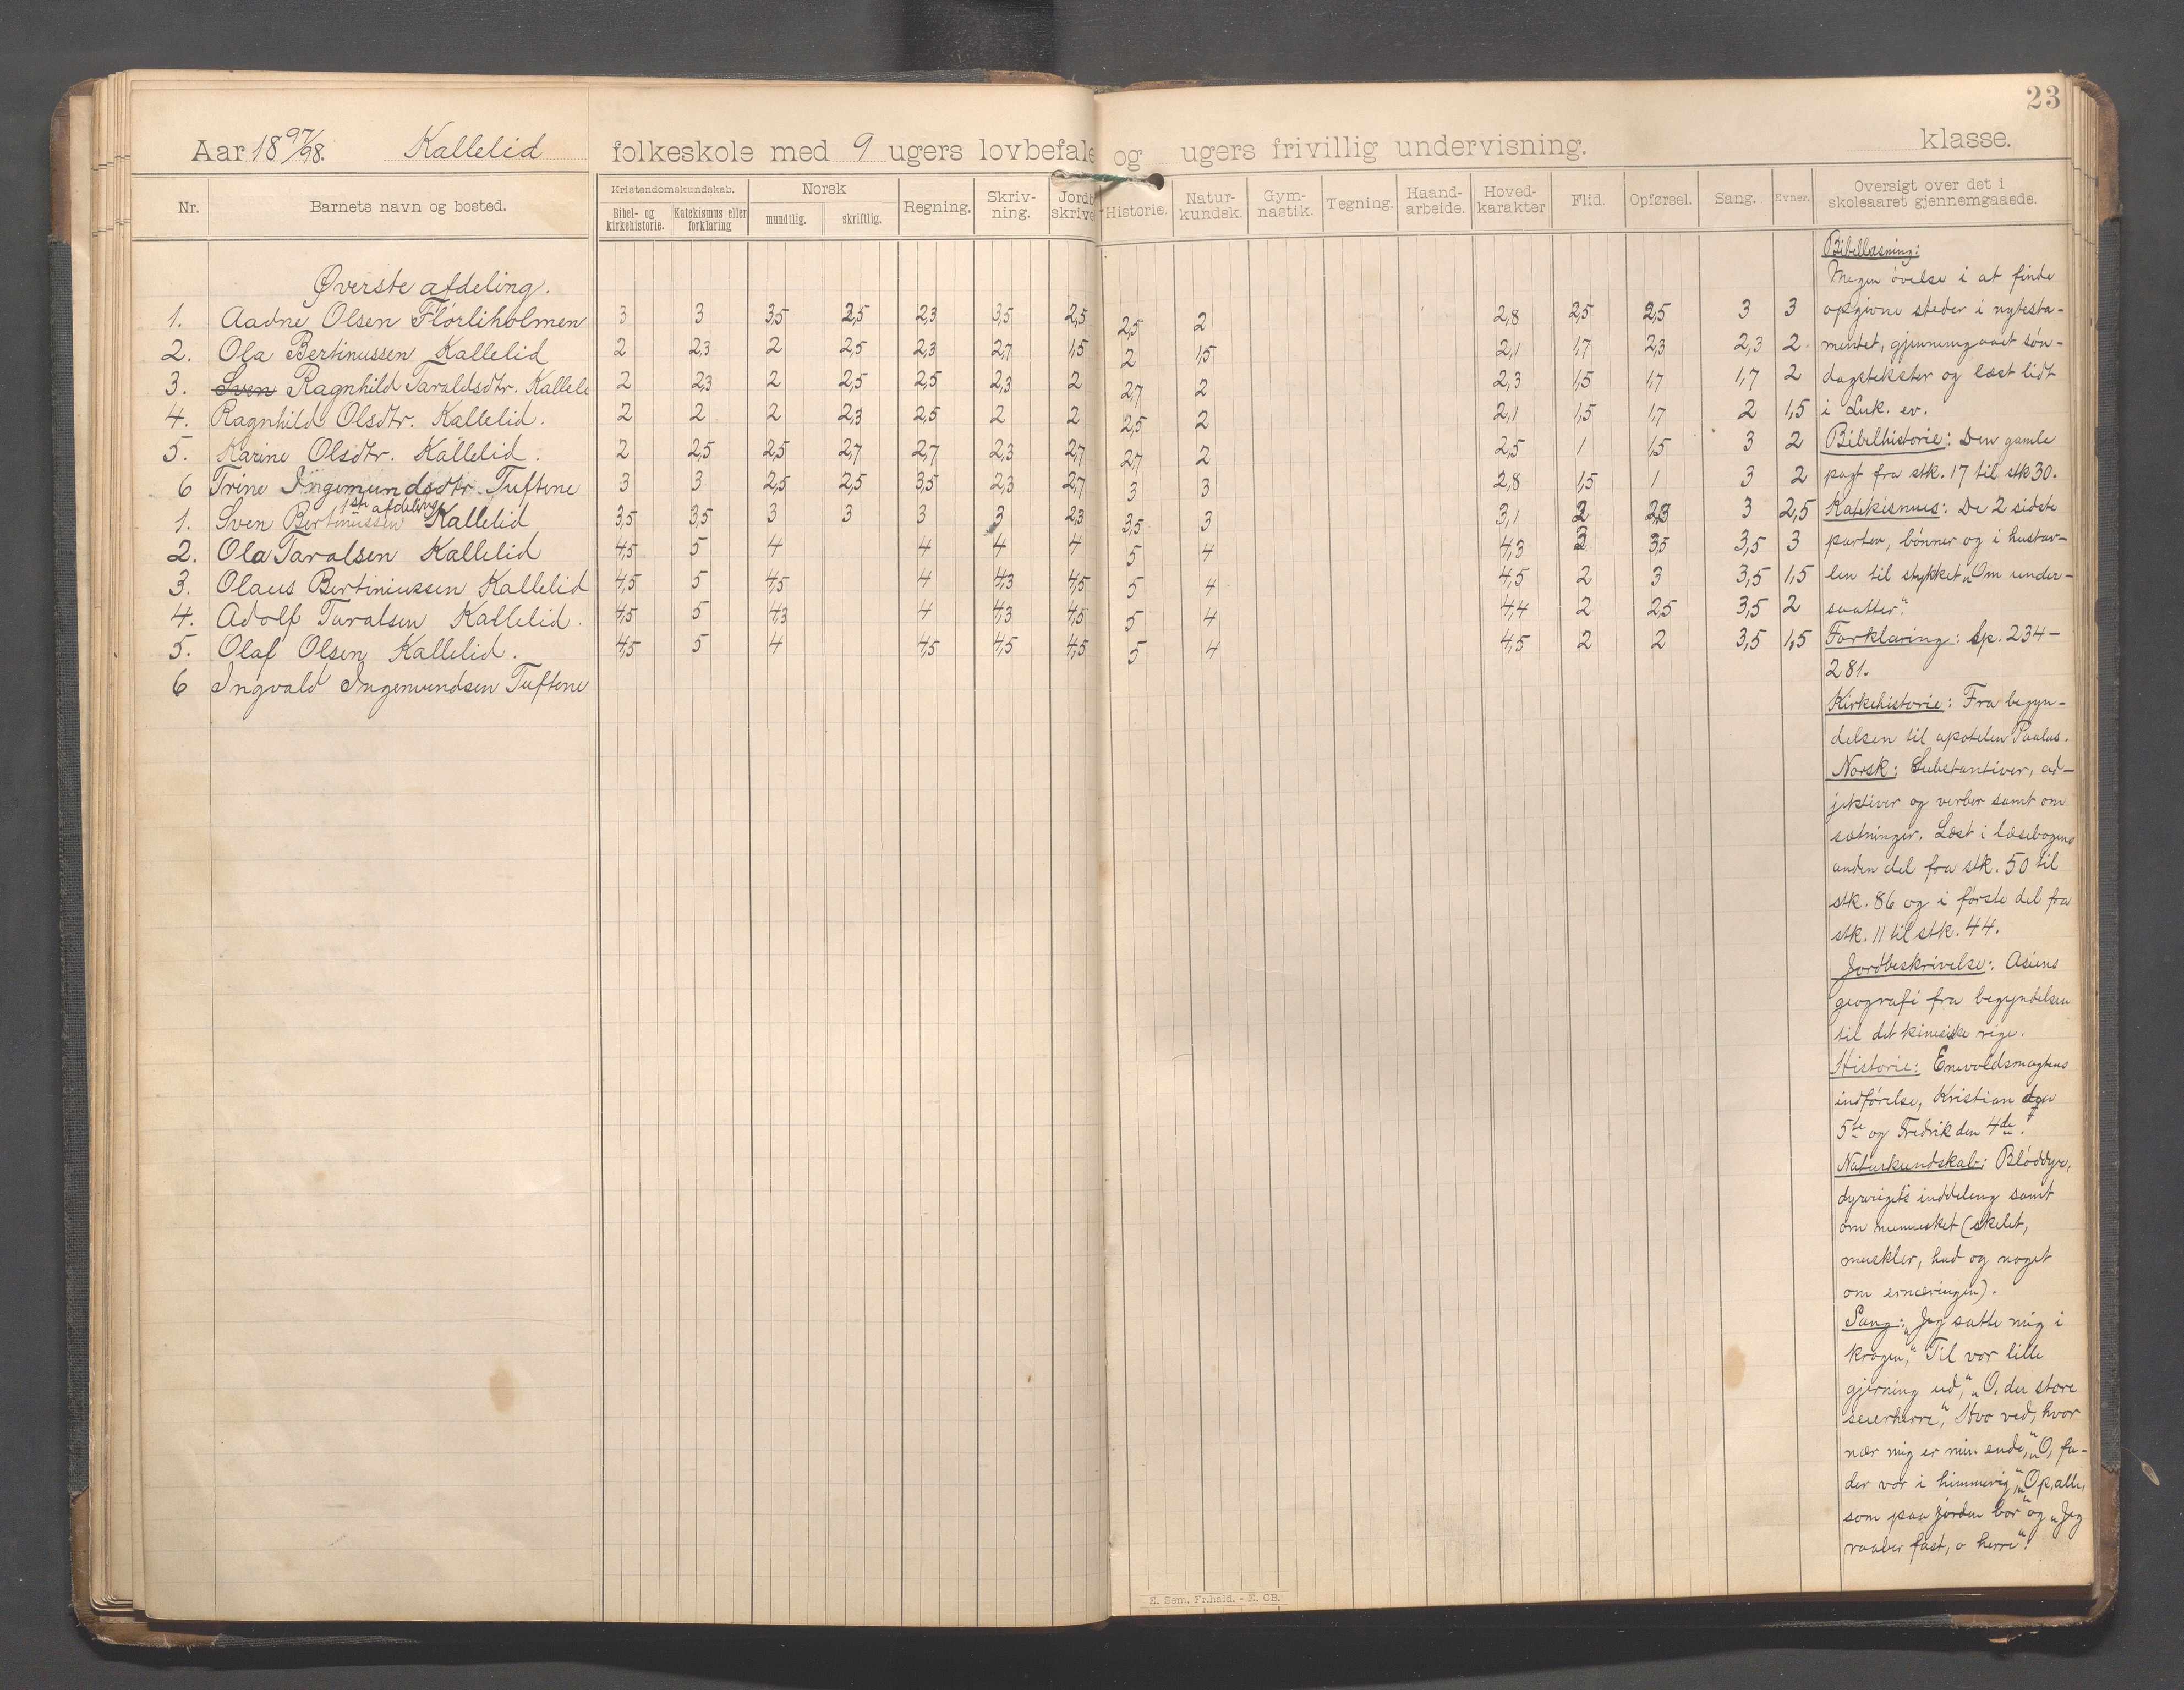 23
Aar 18 97/98. Kallelid folkeskole med 9 ugers lovbefale og ugers frivillig undervisning. klasse.
Nr. Barnets navn og bosted. Kristendomskundskab. Bibel- og kirkehistorie. Katekismus eller forklaring Norsk mundtlig. skriftlig. Regning. Skriv-ning. Jordb skrive Historie. Natur-kundsk. Gym-nastik. Tegning. Haand-arbeide. Hoved-karakter Flid. Opførsel. Sang. Evner. Oversigt over det i skoleaaret gjennemgaaede.
Øverste afdeling.
1. Aadne Olsen Flørliholmen 3 3 3,5 2,5 2,3 3,5 2,5 2,5 2 2,8 2,5 2,5 3 3
2. Ola Bertinussen Kallelid 2 2,3 2 2,5 2,3 2,7 1,5 2 1,5 2,1 1,7 2,3 2,3 2
3. Sven Ragnhild Taraldsdtr. Kallele 2 2,3 2 2,5 2,5 2,3 2 2,7 2 2,3 1,5 1,7 1,7 2
4. Ragnhild Olsdtr. Kallelid. 2 2 2 2,3 2,5 2 2 2,5 2 2,1 1,5 1,7 2 1,5
5. Karine Olsdtr. Kallelid. 2 2,5 2,5 2,7 2,7 2,3 2,7 2,7 2 2,5 1 1,5 3 2
6 Trine Ingemundsdtr. Tuftene 3 3 2,5 2,5 3,5 2,3 2,7 3 3 2,8 1,5 1 3 2
1ste afdeling
1. Sven Bertinussen Kallelid 3,5 3,5 3 3 3 3 2,3 3,5 3 3,1 2 2,3 3 2,5
2. Ola Taralsen Kallelid 4,5 5 4 4 4 4 5 4 4,3 2 3,5 3,5 3
3. Olaus Bertiniussen Kallelid 4,5 5 4,5 4 4,3 4,5 5 4 4,5 2 3 3,5 1,5
4. Adolf Taralsen Kallelid. 4,5 5 4,3 4 4,3 4,5 5 4 4,4 2 2,5 3,5 2
5. Olaf Olsen Kallelid. 4,5 5 4 4,5 4,5 4,5 5 4 4,5 2 2 3,5 1,5
6 Ingvald Ingemundsen Tuftene
Bibellæsning:
Megen øvelse i at finde
opgivne steder i nytesta-
mentet, gjennemgaaet søn-
dagstekster og læst lidt
i Luk. ev.
Bibelhistorie: Den gamle
pagt fra stk. 17 til stk 30.
Katekismus: De 2 sidste
parter, bønner og i hustav-
len til stykket „Om under-
saatter“.
Forklaring: Sp. 234-
281.
Kirkehistorie: Fra begyn-
delsen til apostelen Paulus.
Norsk: Substantiver, ad-
jektiver og verber samt om
sætninger. Læst i læsebogens
anden del fra stk. 50 til
stk. 86 og i første del fra
stk. 11 til stk. 44.
Jordbeskrivelse: Asiens
geografi fra begyndelsen
til det kinesiske rige.
Historie: Enevoldsmagtens
indførelse, Kristian den
5te og Fredrik den 4de.
Naturkundskab: Bløddyr,
dyrerigets inddeling samt
om mennesket (skelet,
muskler, hud og noget
om ernæringen).
Sang: „Jeg satte mig i
krogen“, Til vor lille
gjerning ud“, „O, du store
seierherre“, Hvo ved, hvor
nær mig er min ende“, „O, fa-
der vor i himmerig“, „Op, alle,
som paa jorden bor“ og „Jeg
raaber fast, o herre“.
E. Sem, Fr.hald. - E. OB.